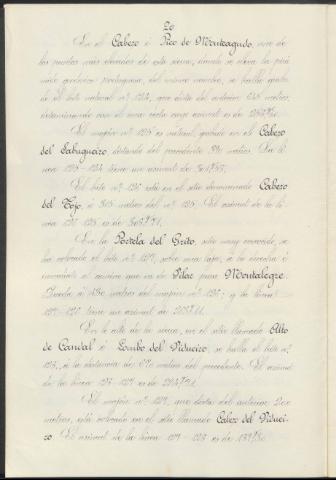 20
En el Cabezo ó Pico de Monteagudo, uno de
los puntos mas elevados de esta sierra, donde se eleva la pirá
mide geodésica portuguesa, del mismo nombre, se halla graba
do el hito natural nº 124, que dista del anterior metros,
determinando con el una recta cuyo azimut es de
El mojón nº 125 es natural, grabado en el Cabezo
del Sabugueiro, distando del precedente metros. La lí
nea 125-124 tiene un azimut de
El hito nº 126 está en el sitio denominado Cabezo
del Tojo, á 305 metros del nº 125. El azimut de la lí
nea 126-125 es de
En la Portela del Grito, sitio muy conocido, se
ha colocado el hito nº 127, sobre una laja, á la derecha é
inmediato al camino que va de Pilar para Montalegre.
Queda á metros del mojón nº 126; y la línea
127-126 tiene un azimut de
En lo alto de la sierra, en el sitio llamado Alto
de Candal ó Lombo del Vidueiro, se halla el hito nº
128, á la distancia de metros del precedente. El azimut
de la línea 128-127 es de
El mojón nº 129, que dista del anterior 200
metros, está colocado en el sitio llamado Cabezo del Viduei
ro. El azimut de la línea 129-128 es de